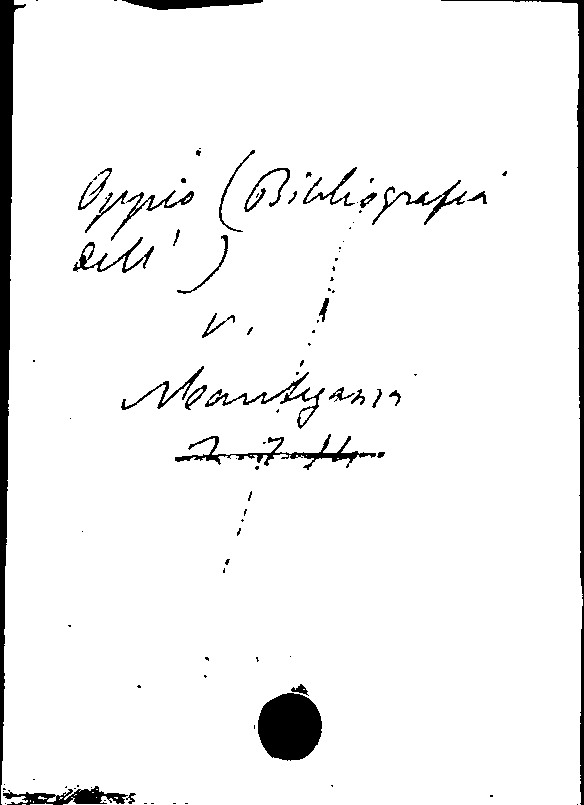 Oppio (Bibliografia
dell')
v.
Mantegazza